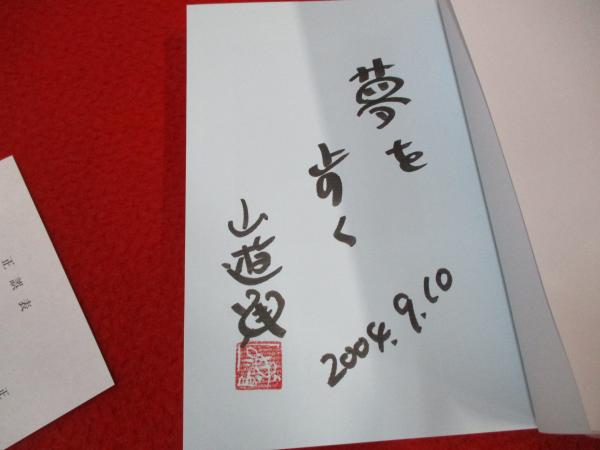 夢を
歩く
山道
2004.9.10
正誤表
正